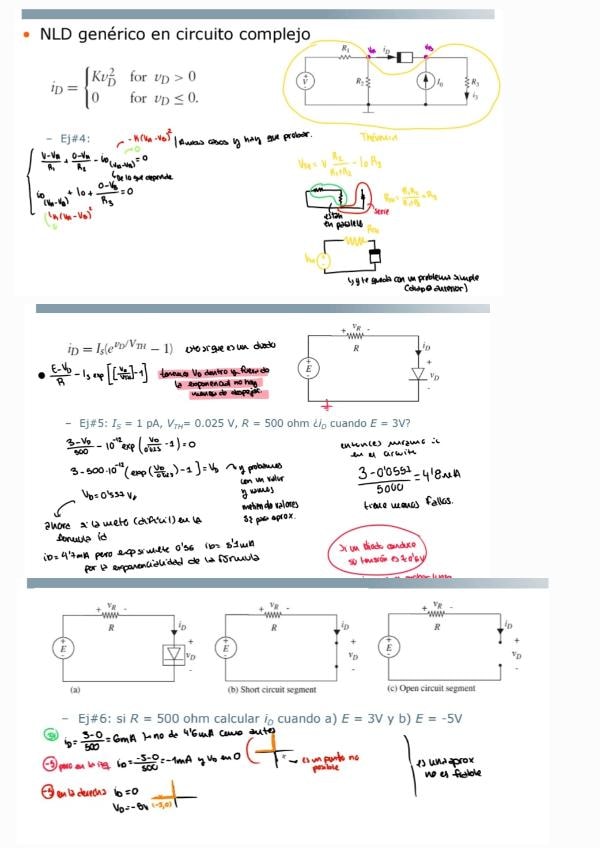 • NLD genérico en circuito complejo
i_D = { Kv_D^2 for v_D > 0
0 for v_D ≤ 0.
R1
iD
V
R2
I0
R3
i3
– Ej#4:
-K(VA-VB)^2
0
2 casos y hay que probar.
(V-VA)/R1 + (0-VA)/R2 - iD (VA-VB) = 0
De lo que depende
iD (VA-VB) + I0 + (0-VB)/R3 = 0
(K(VA-VB)^2
0
Thévenin
VTH = V R2/(R1+R2) - I0 R3
están
en paralelo
serie
RTH = R1R2/(R1+R2) + R3
RTH
VTH
y te queda con un problema simple
(diapo anterior)
i_D = I_S(e^{v_D/V_TH} − 1) esto sigue es un diodo
• (E-VD)/R - IS exp[[VD/VTH]-1] tenemos VD dentro y fuera de
la exponencial no hay
manera de despejar.
+ vR -
R
iD
E
+
vD
-
– Ej#5: I_S = 1 pA, V_TH= 0.025 V, R = 500 ohm ¿i_D cuando E = 3V?
(3-VD)/500 - 10^-12 exp(VD/0'025 - 1) = 0
3 - 500·10^-12 (exp(VD/0'025) - 1] = VD y probamos
con un valor
y vamos
metiendo valores
VD = 0'557 V
ahora si la meto (difícil) en la
fórmula id
iD = 4'7mA pero exp si meto 0'56 iD = 5'1mA
por la exponencialidad de la fórmula
entonces miramos
en el circuito
(3-0'0557)/5000 = 4'8mA
tiene menos fallos.
Si un diodo conduce
su tensión es ≈ 0'6V
+ vR -
R
iD
E
+
vD
-
(a)
+ vR -
R
iD
E
+
vD
-
(b) Short circuit segment
+ vR -
R
iD
E
+
vD
-
(c) Open circuit segment
– Ej#6: si R = 500 ohm calcular i_D cuando a) E = 3V y b) E = -5V
iD = (3-0)/500 = 6mA y no de 4'6mA como antes
-5 pero en la izq iD = (-5-0)/500 = -1mA y VD en 0
es un punto no
posible
-5 en la derecha iD = 0
VD = -5V (-5,0)
es una aprox
no es fiable